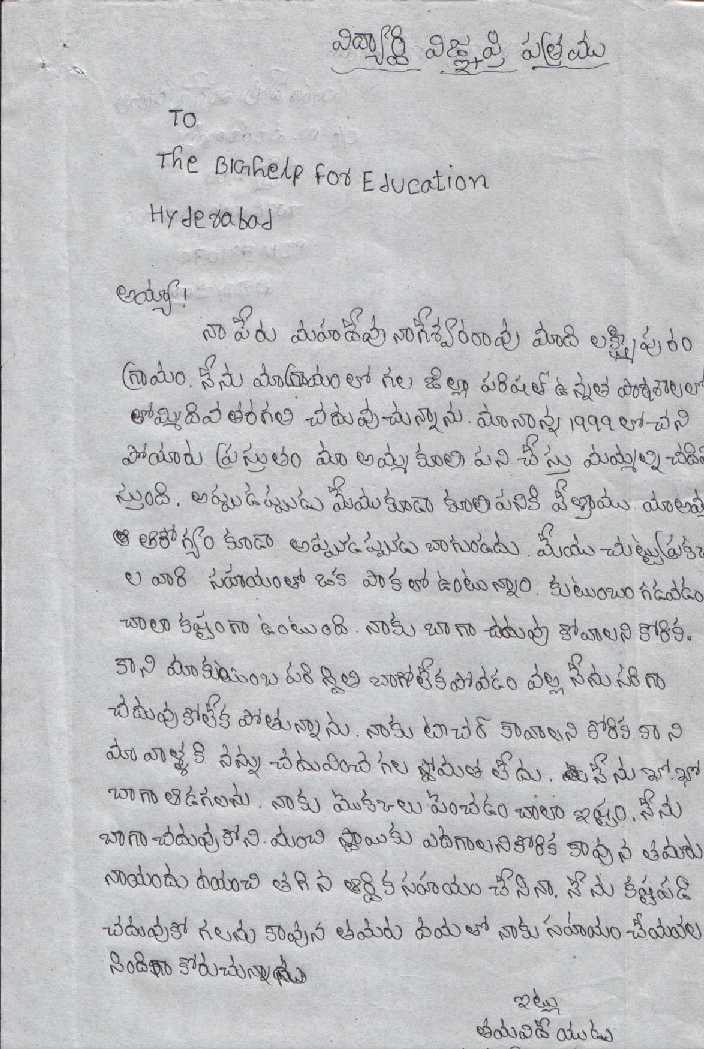 విద్యార్థి విజ్ఞప్తి పత్రము
TO
The BIGhelp for Education
Hyderabad
అయ్యా!
నా పేరు మహాదేవు నాగేశ్వరరావు మాది లక్ష్మిపురం
గ్రామం. నేను మాగ్రామంలో గల జిల్లా పరిషత్ ఉన్నత పాఠశాలలో
తొమ్మిదివ తరగతి చదువుచున్నాను. మానాన్న 1999 లో చని
పోయారు ప్రస్తుతం మా అమ్మ కూలి పని చేస్తు మమ్మల్ని చదివి
స్తుంది. అప్పుడప్పుడు మేము కూడా కూలి పనికి వెళ్తాము. మాఅమ్మ
ఆరోగ్యం కూడా అప్పుడప్పుడు బాగుండదు. మేము చుట్టుప్రక్క
ల వారి సహాయంతో ఒక పాకలో ఉంటున్నాం. కుటుంబం గడవడం
చాలా కష్టంగా ఉంటుంది. నాకు బాగా చదువు కోవాలని కోరిక.
కాని మాకుటుంబ పరిస్థితి బాగోలేక పోవడం వల్ల నేను సరిగా
చదువుకోలేక పోతున్నాను. నాకు టీచర్ కావాలని కోరిక కాని
మా వాళ్ళకి నన్ను చదువించే గల స్తోమత లేదు. నేను ఖో.ఖో
బాగా ఆడగలను. నాకు మొక్కలు పెంచడం చాలా ఇష్టం. నేను
బాగా చదువుకోని మంచి స్థాయికు ఎదగాలనికోరిక కావున తమరు
నాయందు దయంచి తగిన ఆర్థిక సహయం చేసినా, నేను కష్టపడి
చదువుకో గలను కావున తమరు దయతో నాకు సహాయం చేయవల
సిందిగా కోరుచున్నాను
ఇట్లు
తమవిదేయుడు